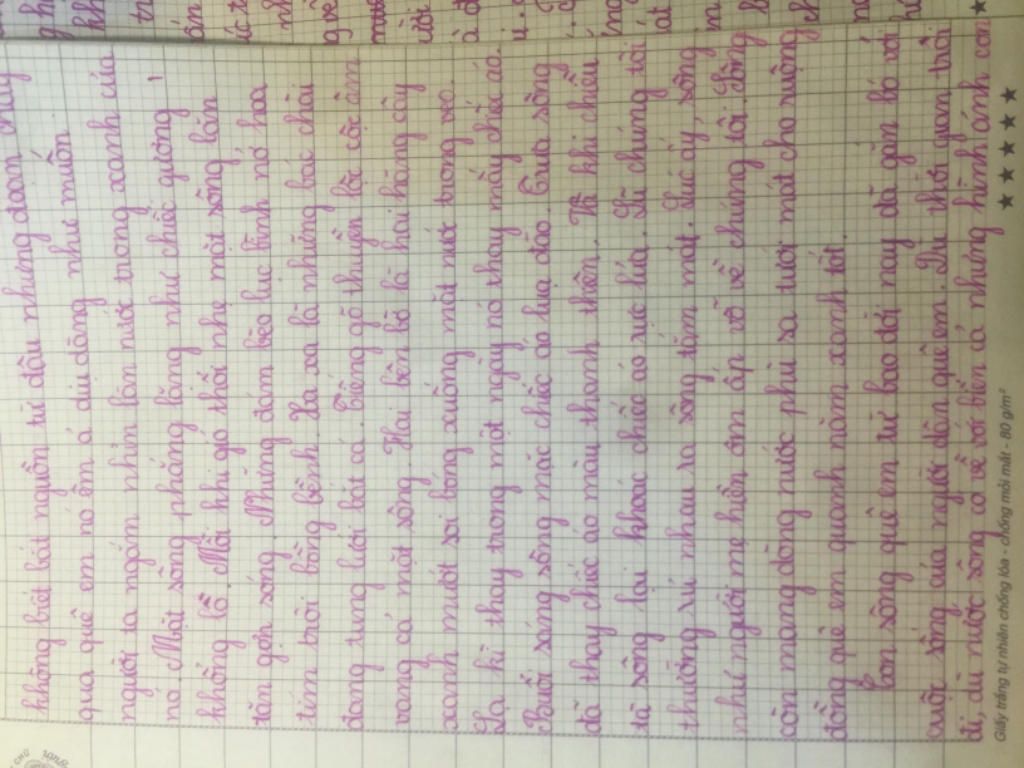 không biết bắt nguồn từ đâu nhưng đoạn chảy
qua quê em nó êm ả dịu dàng như muốn
người ta ngắm nhìn làn nước trong xanh của
nó. Mặt sông phẳng lặng như chiếc gương
khổng lồ. Mỗi khi gió thổi nhẹ mặt sông lăn
tăn gợn sóng. Những đám bèo lục bình nở hoa
tím trôi bồng bềnh. Xa xa là những bác chài
đang tung lưới bắt cá. Tiếng gõ thuyền lộc cộc âm
vang cả mặt sông. Hai bên bờ là hai hàng cây
xanh mướt soi bóng xuống mặt nước trong veo.
Lạ kì thay trong một ngày nó thay mấy chiếc áo.
Buổi sáng sông mặc chiếc áo lụa đào. Trưa sông
đã thay chiếc áo màu thanh thiên. Rồi khi chiều
tà sông lại khoác chiếc áo rực lửa. Lũ chúng tôi
thường rủ nhau ra sông tắm mát. Lúc ấy, sông
như người mẹ hiền ôm ấp vỗ về chúng tôi. Sông
còn mang dòng nước phù sa tưới mát cho ruộng
đồng quê em quanh năm xanh tốt.
Con sông quê em từ bao đời nay đã gắn bó với
cuộc sống của người dân quê em. Dù thời gian trôi
đi, dù nước sông có về với biển cả nhưng hình ảnh con
Giấy trắng tự nhiên chống lóa - chống mỏi mắt - 80 g/m²